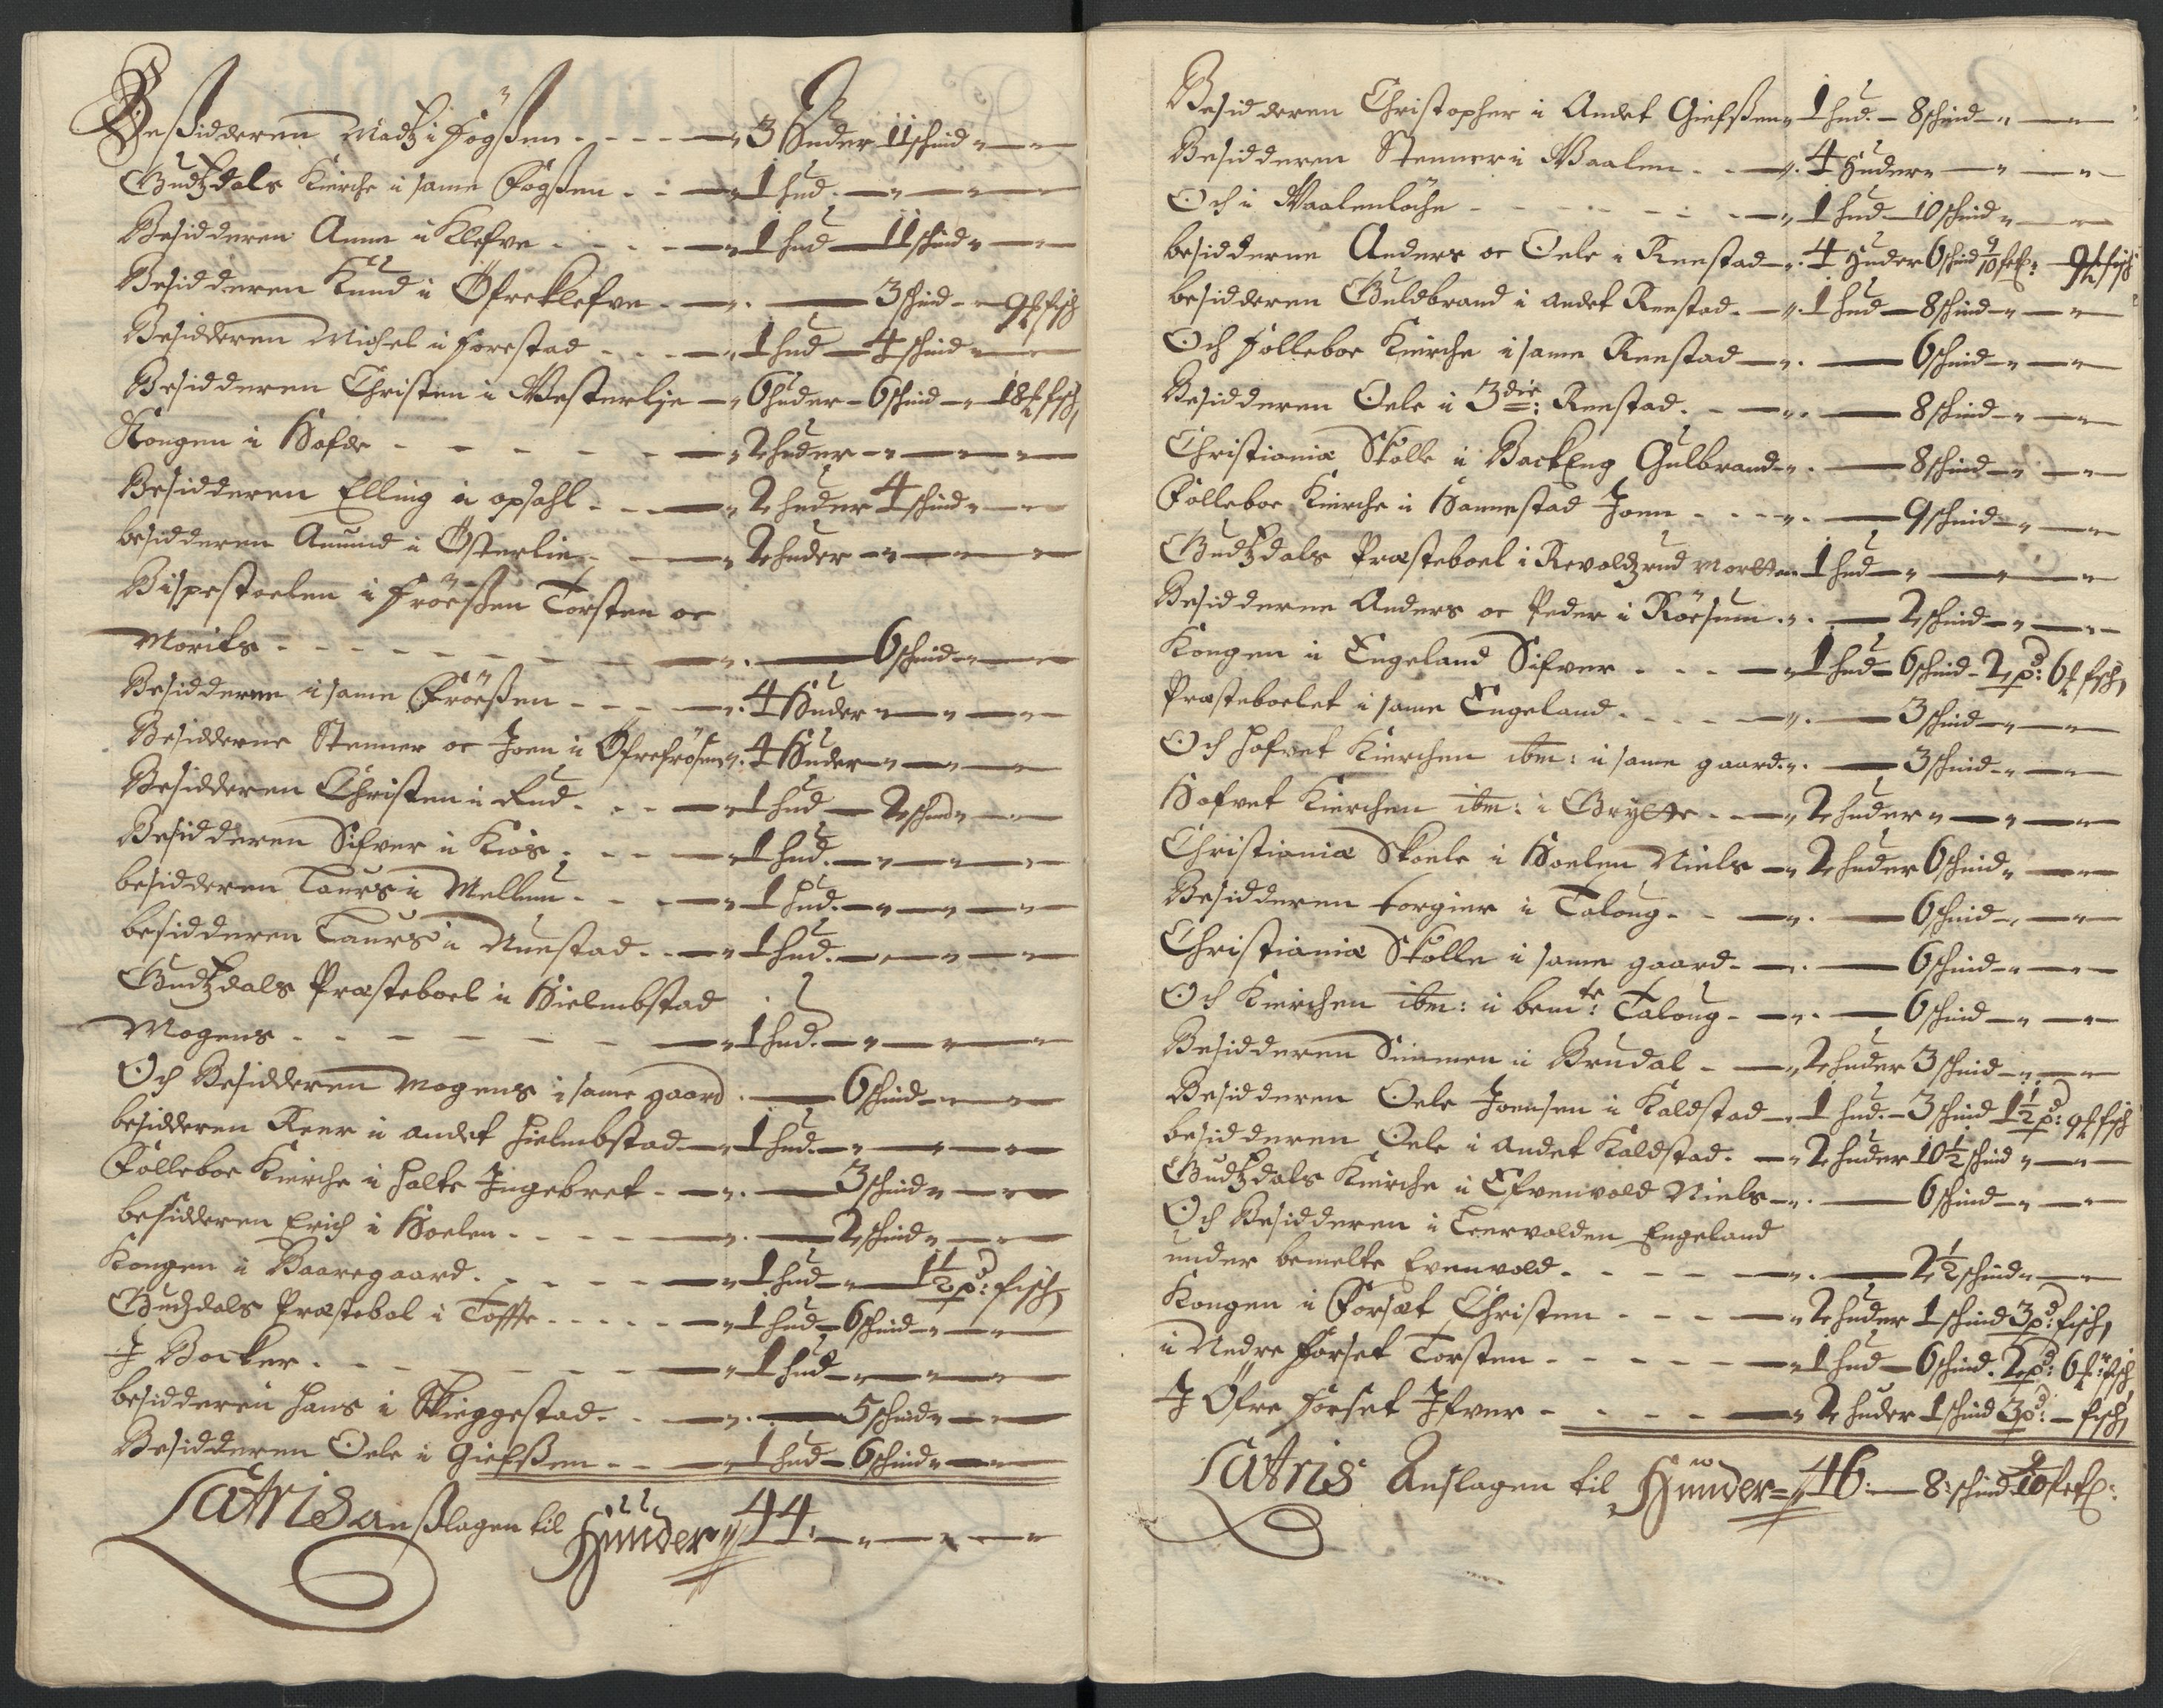 Besidderen Madtz i Fogßen - - - - 3 Huder 11 schind
Gudtzdals Kirche i same Fogßen - - 1 hud
Besidderen Anne i Klefve - - - - 1 hud 11 schind
Besidderen Knud i Øfreklefve - - 3 schind - 9 ℔ fisch
Besidderen Michel i Forestad - - - 1 hud 4 schind
Besidderen Christen i Westerlje - 6 huder 6 schind - 18 ℔ fisch
Kongen i Hofde - - - - - - 2 huder
Besidderen Elling i opsahl - - 2 huder 4 schind
besidderen Amund i Østerlie - - 2 huder
Bispestoelen i Frøeßen Torsten oc
Morits - - - - - - - - 6 schind
Besidderne i same Frøeßen - - - 4 Huder
Besidderne Stenner oc Joen i Øfrefrøsen 4 Huder
Besidderen Christen i Rud - - - 1 hud 2 schind
Besidderen Sifver i Kiøs - - - 1 hud
besidderen Laurs i Mellum - - - 1 hud
besidderen Laurs i Nustad - - 1 hud
Gudtzdals Præsteboel i Hielmbstad
Mogens - - - - - - - 1 hud
Och Besidderen Mogens i same gaard 6 schind
besidderen Reer i andet Hielmbstad 1 hud
Folleboe Kirche i Holte Ingebret - 3 schind
besidderen Erich i Hoelen - - - - 2 schind
Kongen i Baaregaard - - - - 1 hud 1½ pd: fisch
Gudzdals Præstebol i Tofte - - - - 1 hud 6 schind
I Bocker - - - - - - - 1 hud
besidderen Hans i Skieggestad - - 5 schind
Besidderen Oele i Giefßen - - - 1 hud 6 schind
Latris anßlagen til Huuder 44
Besidderen Christopher i Andet Giefßen 1 hud - 8 schind
Besidderen Stenner i Waalen - - 4 Huder
Och i Waalenløche - - - - - - 1 hud 10 schind
besidderne Anders oc Oele i Reestad 4 Huder 6 schind 9/10 9 ℔ fisch
besidderen Guldbrand i andet Reestad - 1 hud 8 schind
Och Folleboe Kirche i same Reestad 6 schind
Besidderen Oele i 3die: Reestad - 8 schind
Christiania Skolle i BackEng Gulbrand 8 schind
Folleboe Kirche i Hannestad Joen - - - 9 schind
Gudtzdals Præsteboel i Revoldzrud Morten 1 hud
Besidderne Anders oc Peder i Røesum 2 schind
Kongen i Engeland Sifver - - - - 1 hud 6 schind 2 pd: 6 ℔ fisch
Præsteboelet i same Engeland - - - - 3 schind
Och Hofvet Kirchen ibm: i same gaard 3 schind
Hofvet Kirchen ibm: i Brytte - - 2 huder
Christiania Skoele i Hoelen Niels - 2 huder 6 schind
Besidderen torgier i Taloug - - 6 schind
Christiania Skolle i same gaard - 6 schind
Och Kirchen ibm: i bemte: Taloug - 6 schind
Besidderen Simmen i Brudal - - 2 huder 3 schind
Besidderen Oele Joensen i Kaldstad - 1 hud - 3 schind 1½ pd: 9 ℔ fisch
besidderen Oele i andet Kaldstad - 2 huder 10½ schind
Gudtzdals Kirche i Efvenvold Niels - 6 schind
Och Besidderen i Leervolden Engeland
under bemelte Evenvold - - - - - 2½ schind
Kongen i Forsæt Christen - - - - 2 huder 1 schind 3 pd: fisch
i Nedre Forset Torsten - - - - - 1 hud 6 schind 2 pd: 6 ℔: fisch
I Øfre Forset Ifver - - - - - 2 huder 1 schind 3 pd: - fisch
Latris Anslagen til Huuder 46: - 8: schind 9/10